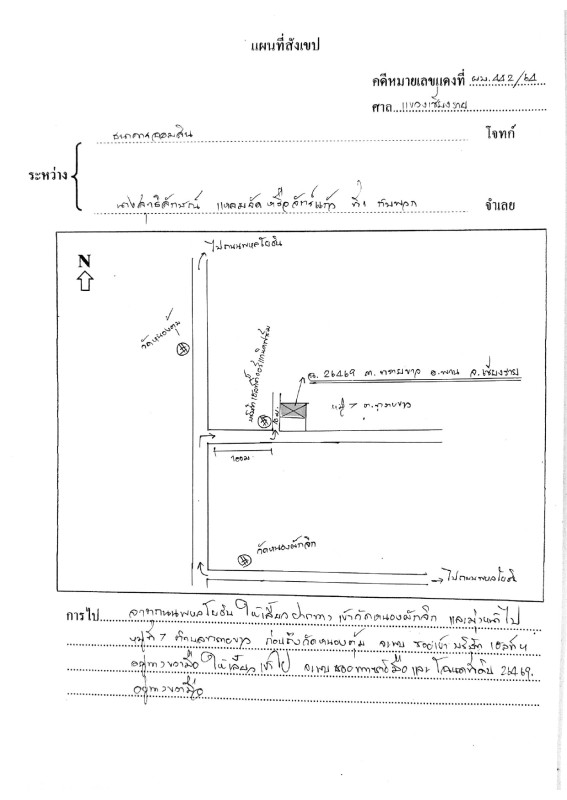 แผนที่สังเขป
คดีหมายเลขแดงที่ ผบ.442/64
ศาล แขวงเชียงราย
ธนาคารออมสิน โจทก์
ระหว่าง
นางสุทธิลักษณ์ แหลมจัด หรือจันทร์แก้ว ที่1 กับพวก จำเลย
ไปถนนพหลโยธิน
N
วัดหนองตุ้ม
ฉ. 26469 ต. ทรายขาว อ.พาน จ.เชียงราย
หมู่ 7 ต.ทรายขาว
วัดหนองผักจิก
ไปถนนพหลโยธิน
การไป จากถนนพหลโยธิน ให้เลี้ยวปากทาง เข้าวัดหนองผักจิก และมุ่งหน้าไป
หมู่ที่ 7 ตำบลทรายขาว ก่อนถึงวัดหนองตุ้ม จะพบ ซอยเข้า บริษัท
อยู่ทางขวามือ ให้เลี้ยวเข้าไป จะพบ ซอยทางซ้ายมือ และ โฉนดที่ดิน 26469.
อยู่ทางขวามือ